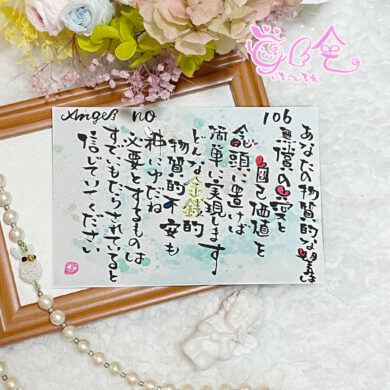 Angel no 106
あなたの物質的な望みは
無償の愛と
自己価値を
念頭に置けば
簡単に実現します
どんな金銭的
物質的不安も
神にゆだね
必要とするものは
すでにもたらされていると
信じてください